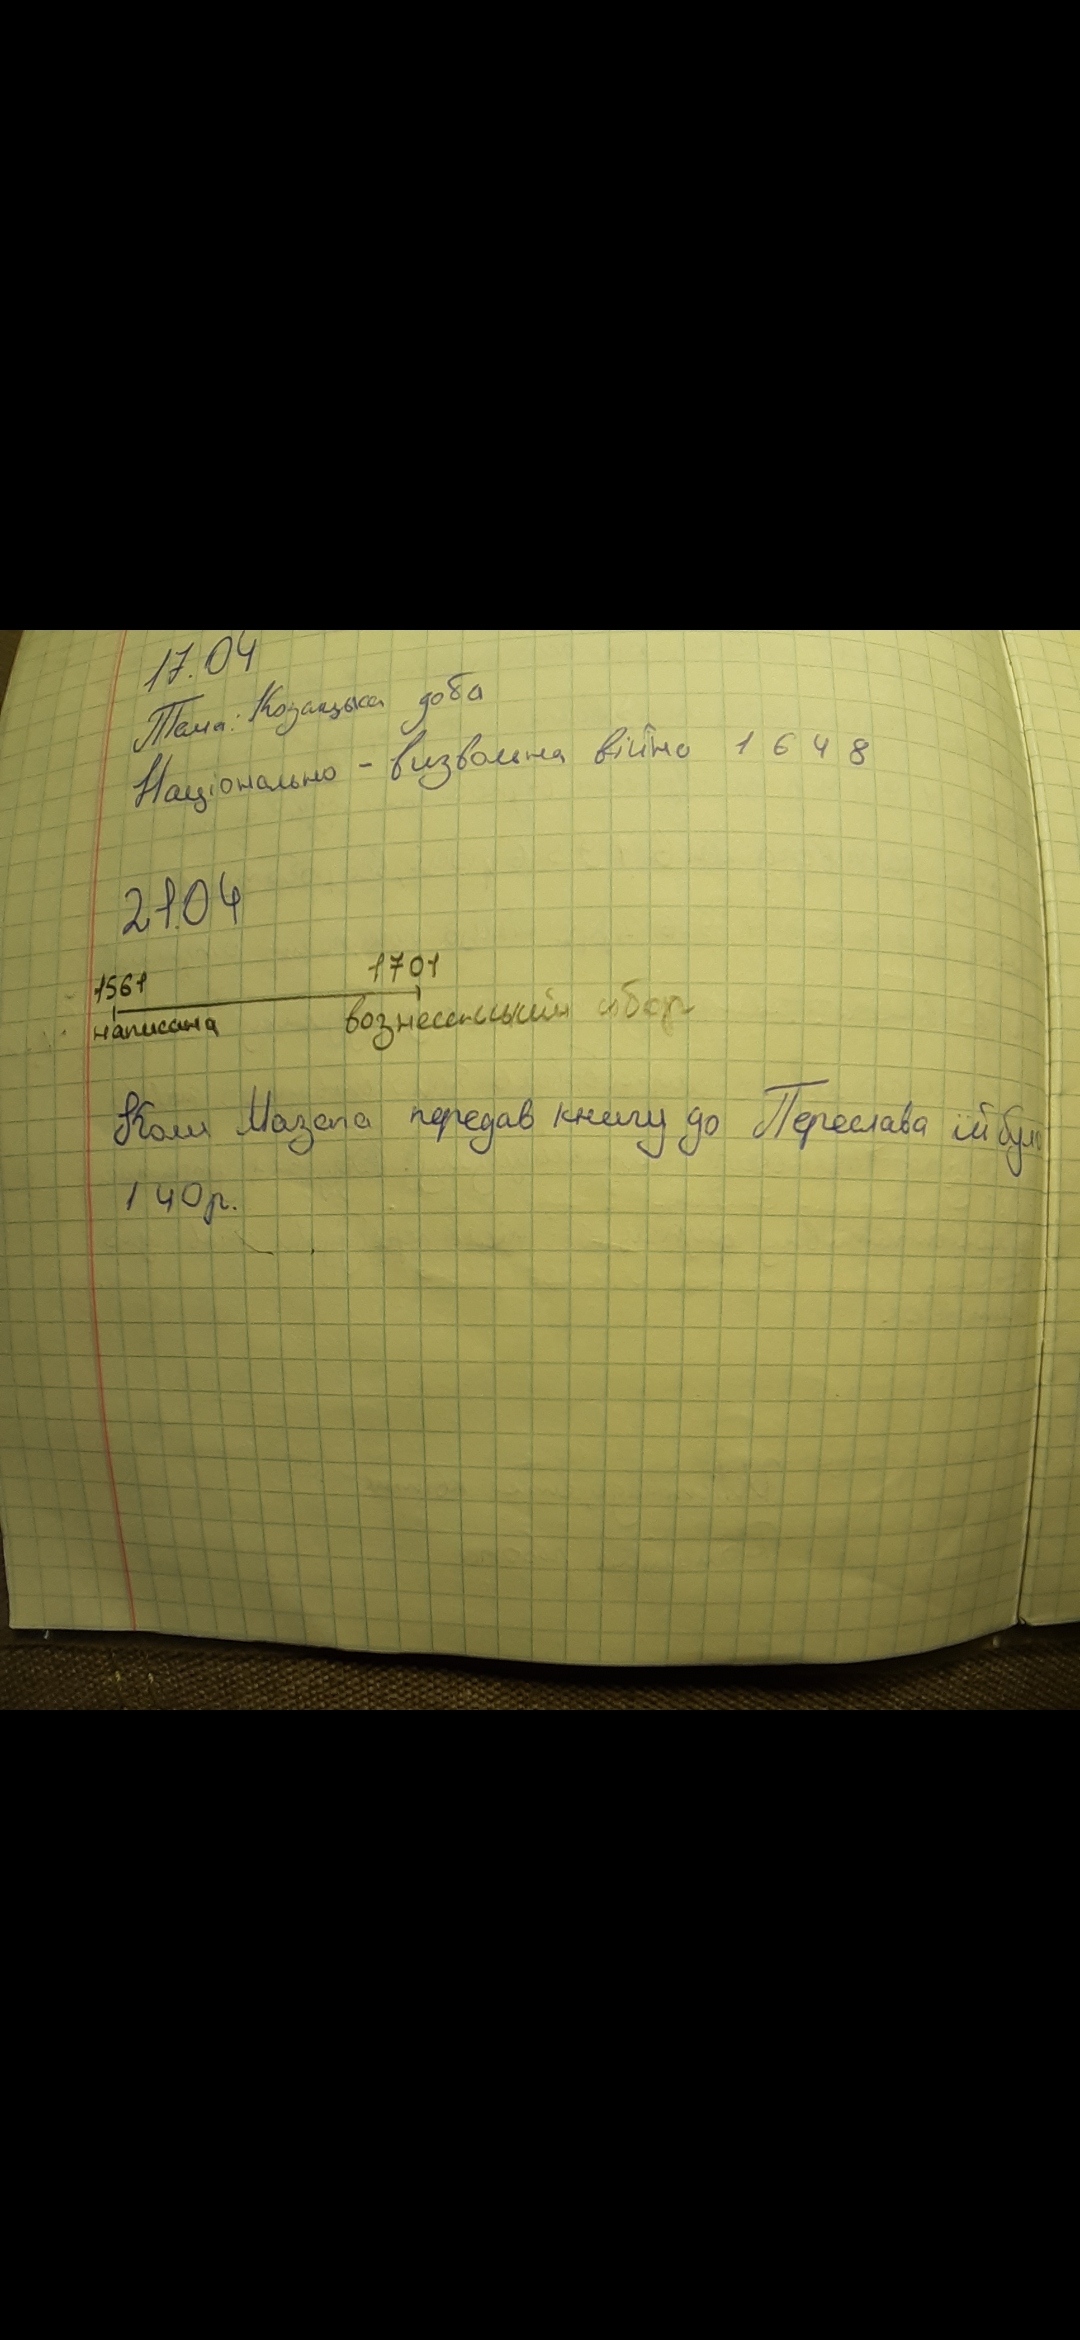 17.04
Тема: Козацька доба
Національно - визвольна війна 1648
21.04
1561 1701
написана вознесенський собор
Коли Мазепа передав книгу до Переслава їй було
140р.